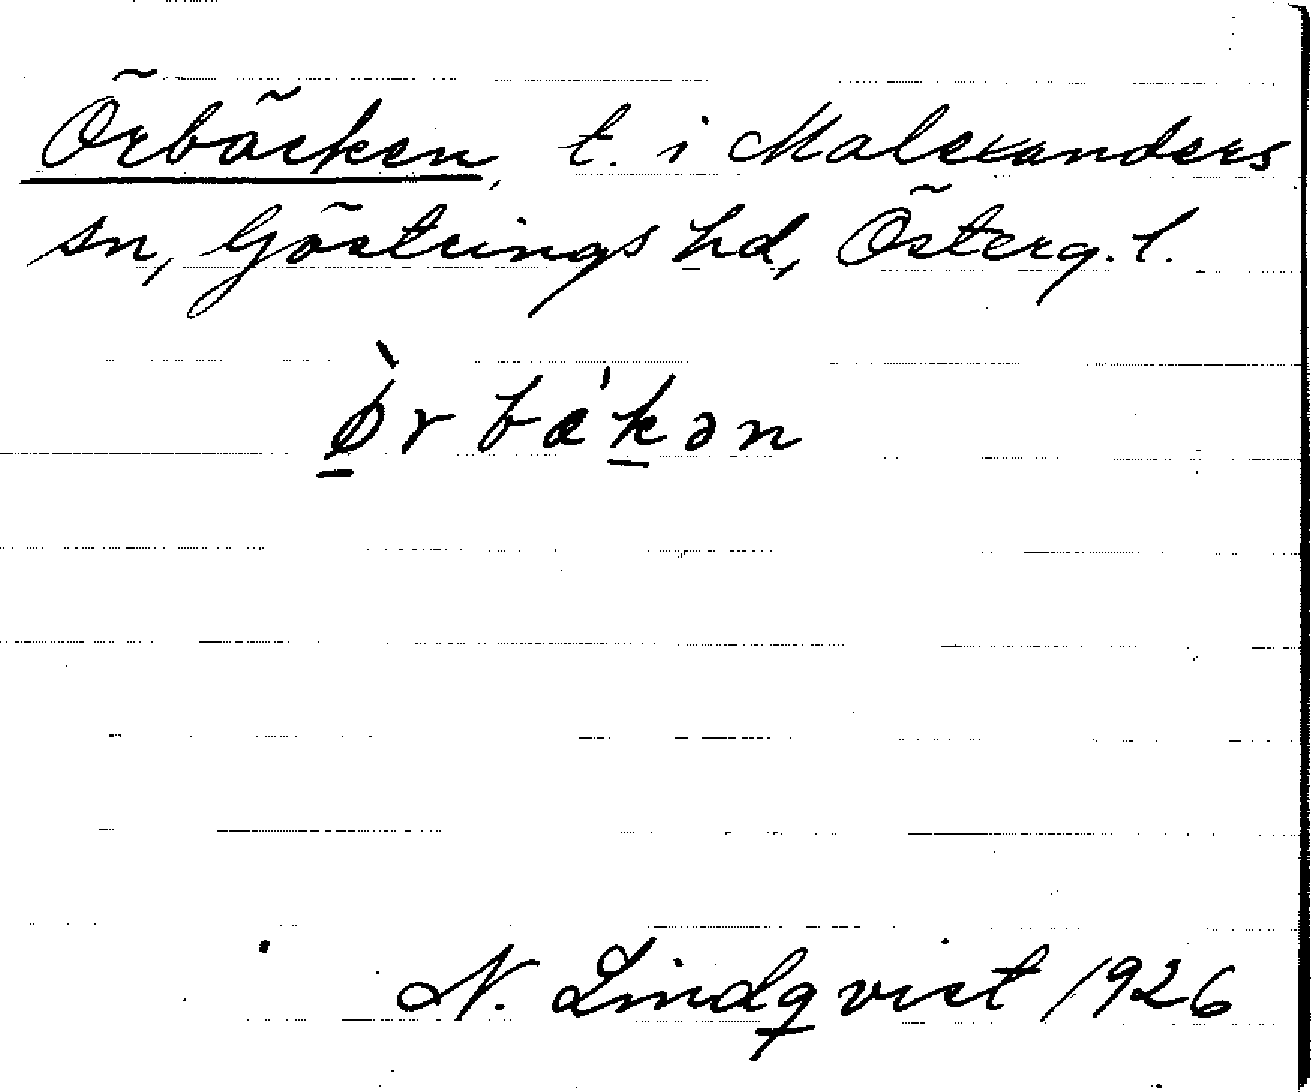 Örbäcken, t. i Malexanders
sn, Göstrings hd, Österg. l.
ø̠̀rbæ̍k̠ən
N. Lindqvist 1926